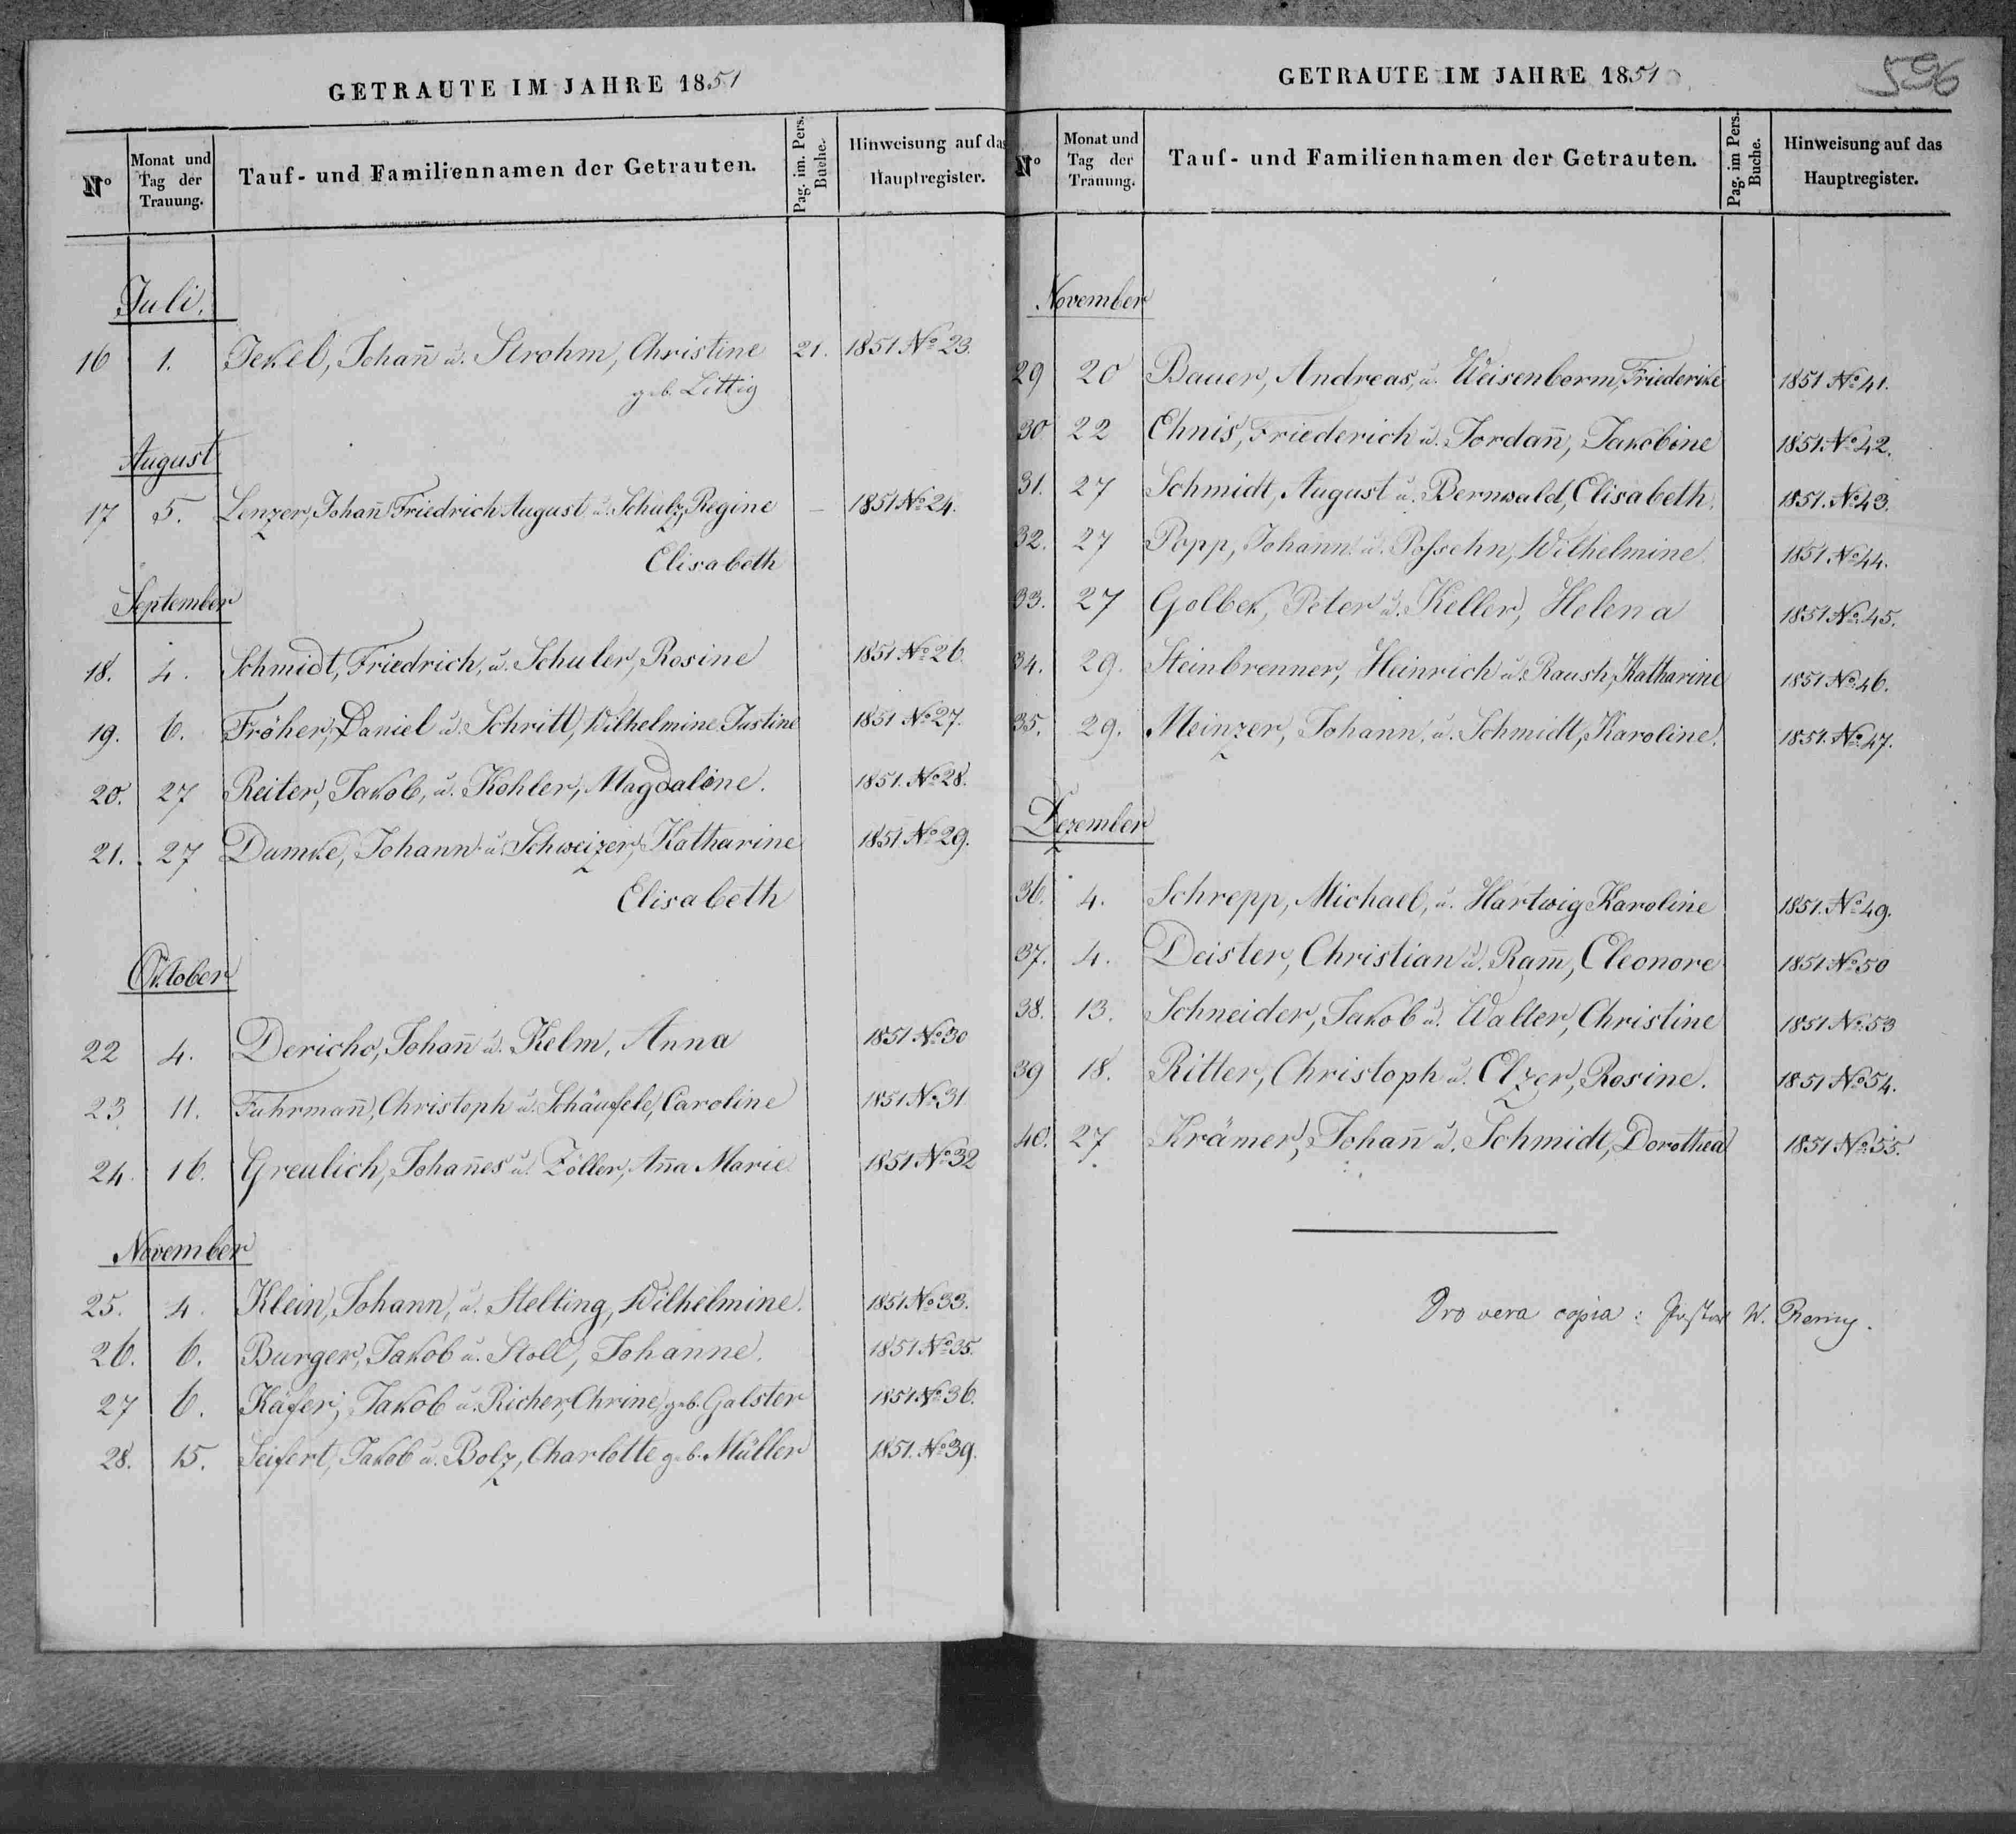 GETRAUTE IM JAHRE 1851
No Monat und Tag der Trauung. Tauf- und Familiennamen der Getrauten. Pag. im. Pers. Buche. Hinweisung auf das Hauptregister.
Juli.
16 1. Jekel, Johañ u. Strohm, Christine 21. 1851 No 23.
geb. Littig
August
17 5. Lenzer, Johañ Friedrich August u. Schulz, Regine — 1851 No 24.
Elisabeth
September
18. 4. Schmidt, Friedrich, u. Schuler, Rosine 1851 No 26.
19. 6. Fröher, Daniel u. Schritt, Wilhelmine Justine 1851 No 27.
20. 27 Reiter, Jakob, u. Kohler, Magdalene. 1851. No 28.
21. 27 Damke, Johann u. Schweizer, Katharine 1851. No 29.
Elisabeth
Oktober
22 4. Dericho, Johañ u. Kelm, Anna 1851 No 30
23. 11. Fuhrmañ, Christoph u. Schäufele, Caroline 1851 No 31
24. 16. Greulich, Johañes u. Zöller, Añna Marie 1851 No 32
November
25. 4. Klein, Johann, u. Stelting, Wilhelmine. 1851 No 33.
26. 6. Burger, Jakob u. Stoll, Johanne. 1851 No 35.
27 6. Käfer, Jakob u. Richer, Chrine, geb. Galster 1851 No 36.
28. 15. Seifert, Jakob u. Bolz, Charlotte geb. Müller 1851. No 39.
596
GETRAUTE IM JAHRE 1851
No Monat und Tag der Trauung. Tauf- und Familiennamen der Getrauten. Pag. im Pers. Buche. Hinweisung auf das Hauptregister.
November
29 20 Bauer, Andreas, u. Weisenborm, Friederike 1851 No 41.
30 22 Ehnis, Friederich u. Jordañ, Jakobine 1851 No 42.
31. 27 Schmidt, August u. Bernwald, Elisabeth. 1851. No 43.
32. 27 Popp, Johann u. Poſsehn, Wilhelmine. 1851 No 44.
33. 27 Golbek, Peter u. Keller, Helena 1851 No 45.
34. 29. Steinbrenner, Heinrich u. Raush, Katharine 1851 No 46.
35. 29. Meinzer, Johann, u. Schmidt, Karoline. 1851. No 47.
Dezember
36. 4. Schrepp, Michael, u. Hartwig Karoline 1851. No 49.
37. 4. Deister, Christian u. Ram̃, Eleonore 1851 No 50
38. 13. Schneider, Jakob u. Walter, Christine 1851 No 53
39 18. Ritter, Christoph u. Elzer, Rosine. 1851 No 54.
40. 27 Krämer, Johañ u. Schmidt, Dorothea 1851 No 55.
Pro vera copia: Pastor W.